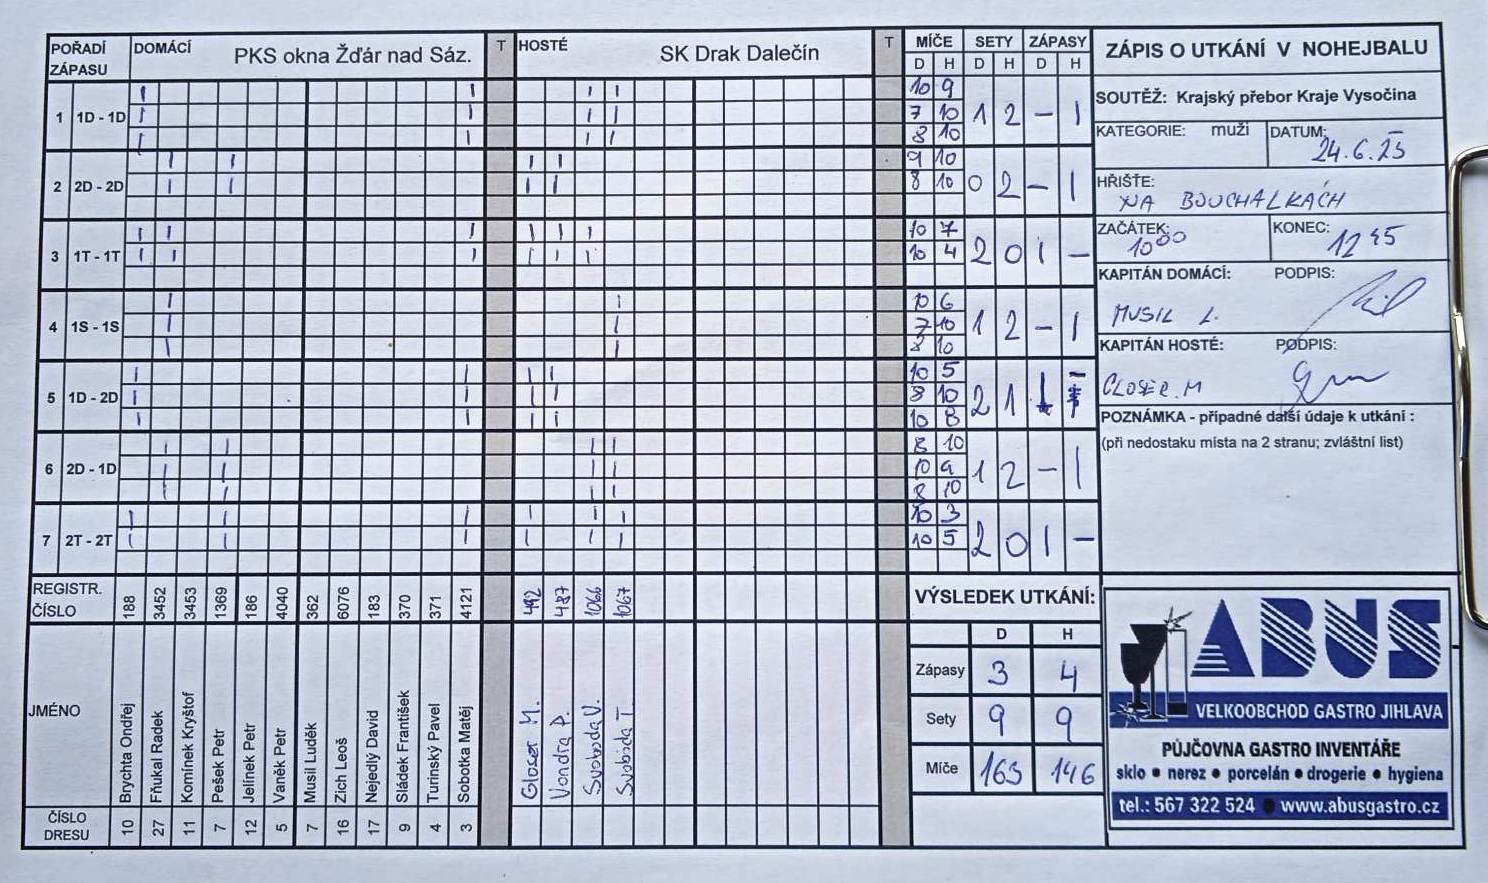 POŘADÍ ZÁPASU DOMÁCÍ PKS okna Žďár nad Sáz. T HOSTÉ SK Drak Dalečín T MÍČE SETY ZÁPASY
D H D H D H
1 1D - 1D 10 9 1 2 - 1
7 10
8 10
2 2D - 2D 9 10 0 2 - 1
8 10
3 1T - 1T 10 7 2 0 1 -
10 4
4 1S - 1S 10 6 1 2 - 1
7 10
8 10
5 1D - 2D 10 5 2 1 1 -
8 10
10 8
6 2D - 1D 8 10 1 2 - 1
10 9
8 10
7 2T - 2T 10 3 2 0 1 -
10 5
REGISTR. ČÍSLO 188 3452 3453 1369 186 4040 362 6076 183 370 371 4121 492 487 1066 1067
JMÉNO
Brychta Ondřej
Fňukal Radek
Komínek Kryštof
Pešek Petr
Jelínek Petr
Vaněk Petr
Musil Luděk
Zich Leoš
Nejedlý David
Sládek František
Turinský Pavel
Sobotka Matěj
Gloser M.
Vondra P.
Svoboda V.
Svoboda T.
ČÍSLO DRESU 10 27 11 7 12 5 7 16 17 9 4 3
VÝSLEDEK UTKÁNÍ:
D H
Zápasy 3 4
Sety 9 9
Míče 163 146
ZÁPIS O UTKÁNÍ V NOHEJBALU
SOUTĚŽ: Krajský přebor Kraje Vysočina
KATEGORIE: muži DATUM: 24.6.25
HŘIŠTE:
NA BOUCHALKÁCH
ZAČÁTEK: 10 00 KONEC: 12 45
KAPITÁN DOMÁCÍ: PODPIS:
MUSIL L.
KAPITÁN HOSTÉ: PODPIS:
GLOSER M
POZNÁMKA - případné další údaje k utkání :
(při nedostaku místa na 2 stranu; zvláštní list)
ABUS
VELKOOBCHOD GASTRO JIHLAVA
PŮJČOVNA GASTRO INVENTÁŘE
sklo • nerez • porcelán • drogerie • hygiena
tel.: 567 322 524 • www.abusgastro.cz